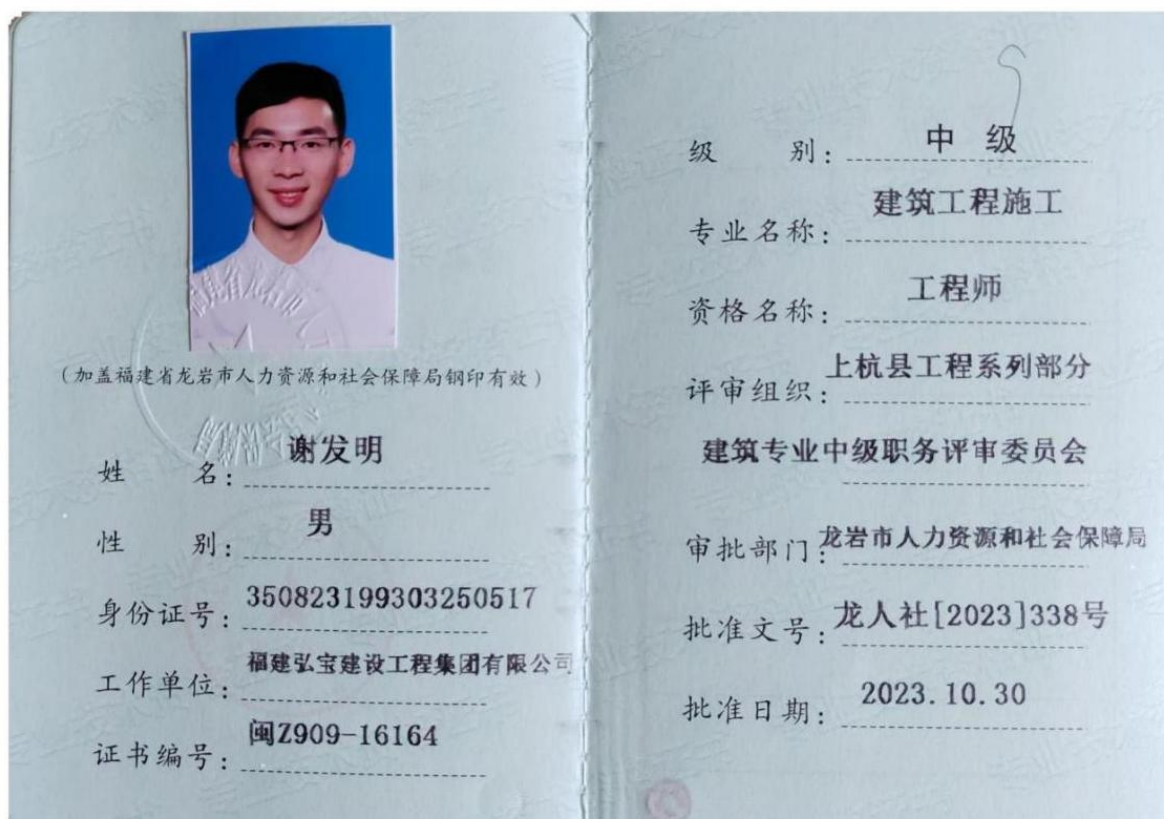 (加盖福建省龙岩市人力资源和社会保障局钢印有效)
姓 名: 谢发明
性 别: 男
身份证号: 350823199303250517
工作单位: 福建弘宝建设工程集团有限公司
证书编号: 闽Z909-16164
级 别: 中 级
专业名称: 建筑工程施工
资格名称: 工程师
评审组织: 上杭县工程系列部分
建筑专业中级职务评审委员会
审批部门: 龙岩市人力资源和社会保障局
批准文号: 龙人社[2023]338号
批准日期: 2023.10.30